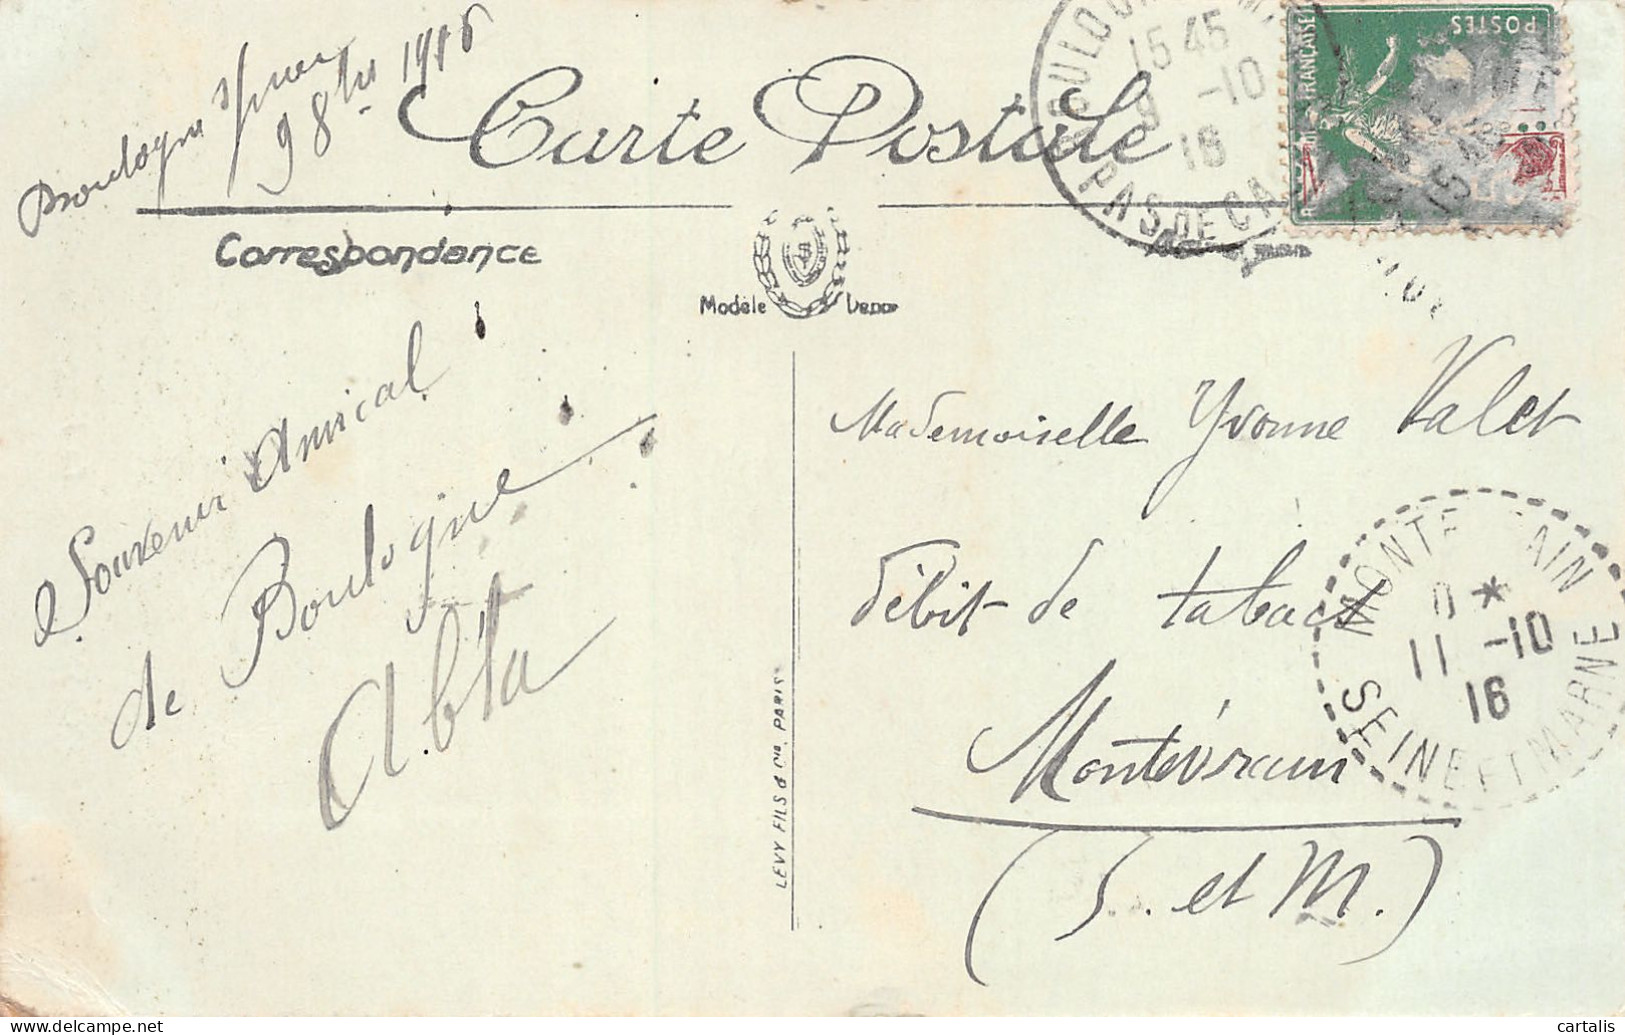 Boulogne s/mer
9 8bre 1916
Carte Postale
Correspondance
Modèle
BOULOGNE
15 45
9 -10
16
PAS DE CALAIS
POSTES
FRANÇAISE
Souvenir Amical
de Boulogne
LEVY FILS & Cie, PARIS
Mademoiselle Yvonne Valet
débit de tabac
Montévrain
(S. et M.)
MONTEVRAIN
11 -10
16
SEINE ET MARNE
cartalis